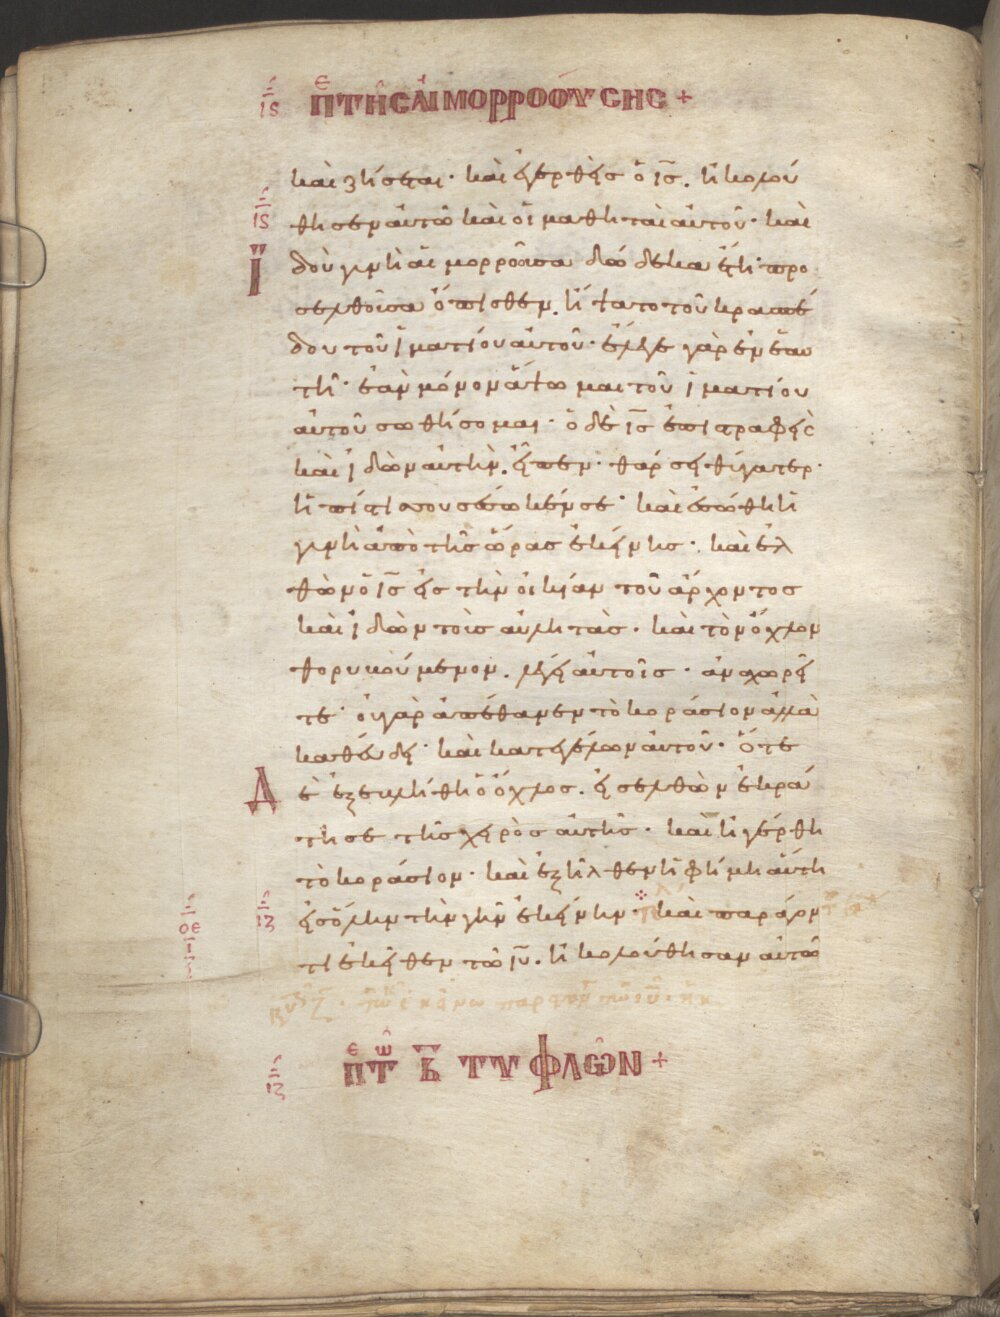 ις πε τῆς αἱμορροούσης +
καὶ ζήσεται· καὶ ἐγερθεὶς ὁ ις. ἠκολού
ις
θησεν αὐτῶ καὶ οἱ μαθηταὶ αὐτοῦ· καὶ
ἰδοὺ γυνὴ αἱμορροοῦσα δώδεκα ἔτη· προ
σελθοῦσα ὄπισθεν. ἥψατο τοῦ κρασπέ
δου τοῦ ἱματίου αὐτοῦ· ἔλεγε γὰρ ἐν ἑαυ
τῆ· ἐὰν μόνον ἅψωμαι τοῦ ἱματίου
αὐτοῦ σωθήσομαι· ὁ δὲ ις ἐπιστραφεὶς
καὶ ἰδὼν αὐτὴν. εἶπεν· θάρσει θύγατερ·
ἡ πίστις σου σέσωκέν σε· καὶ ἐσώθη ἡ
γυνὴ ἀπὸ τῆς ὥρας ἐκείνης· καὶ ἐλ
θὼν ὁ ις εἰς τὴν οἰκίαν τοῦ ἄρχοντος
καὶ ἰδὼν τοὺς αὐλητὰς· καὶ τὸν ὄχλον
θορυβούμενον. λέγει αὐτοῖς· ἀναχωρεῖ
τε· οὐ γὰρ ἀπέθανεν τὸ κοράσιον ἀλλὰ
καθεύδει· καὶ κατεγέλων αὐτοῦ· ὅτε
Δ ὲ ἐξεβλήθη ὁ ὄχλος. εἰσελθὼν ἐκρά
τησε τῆς χειρὸς αὐτῆς· καὶ ἠγέρθη
τὸ κοράσιον· καὶ ἐξῆλθεν ἡ φήμη αὕτη
οε ιζ
εἰς ὅλην τὴν γῆν ἐκείνην· καὶ παράγον
τι ἐκεῖθεν τῶ ιυ. ἠκολούθησαν αὐτῶ
ιζ πε τῶ β τυφλῶν +